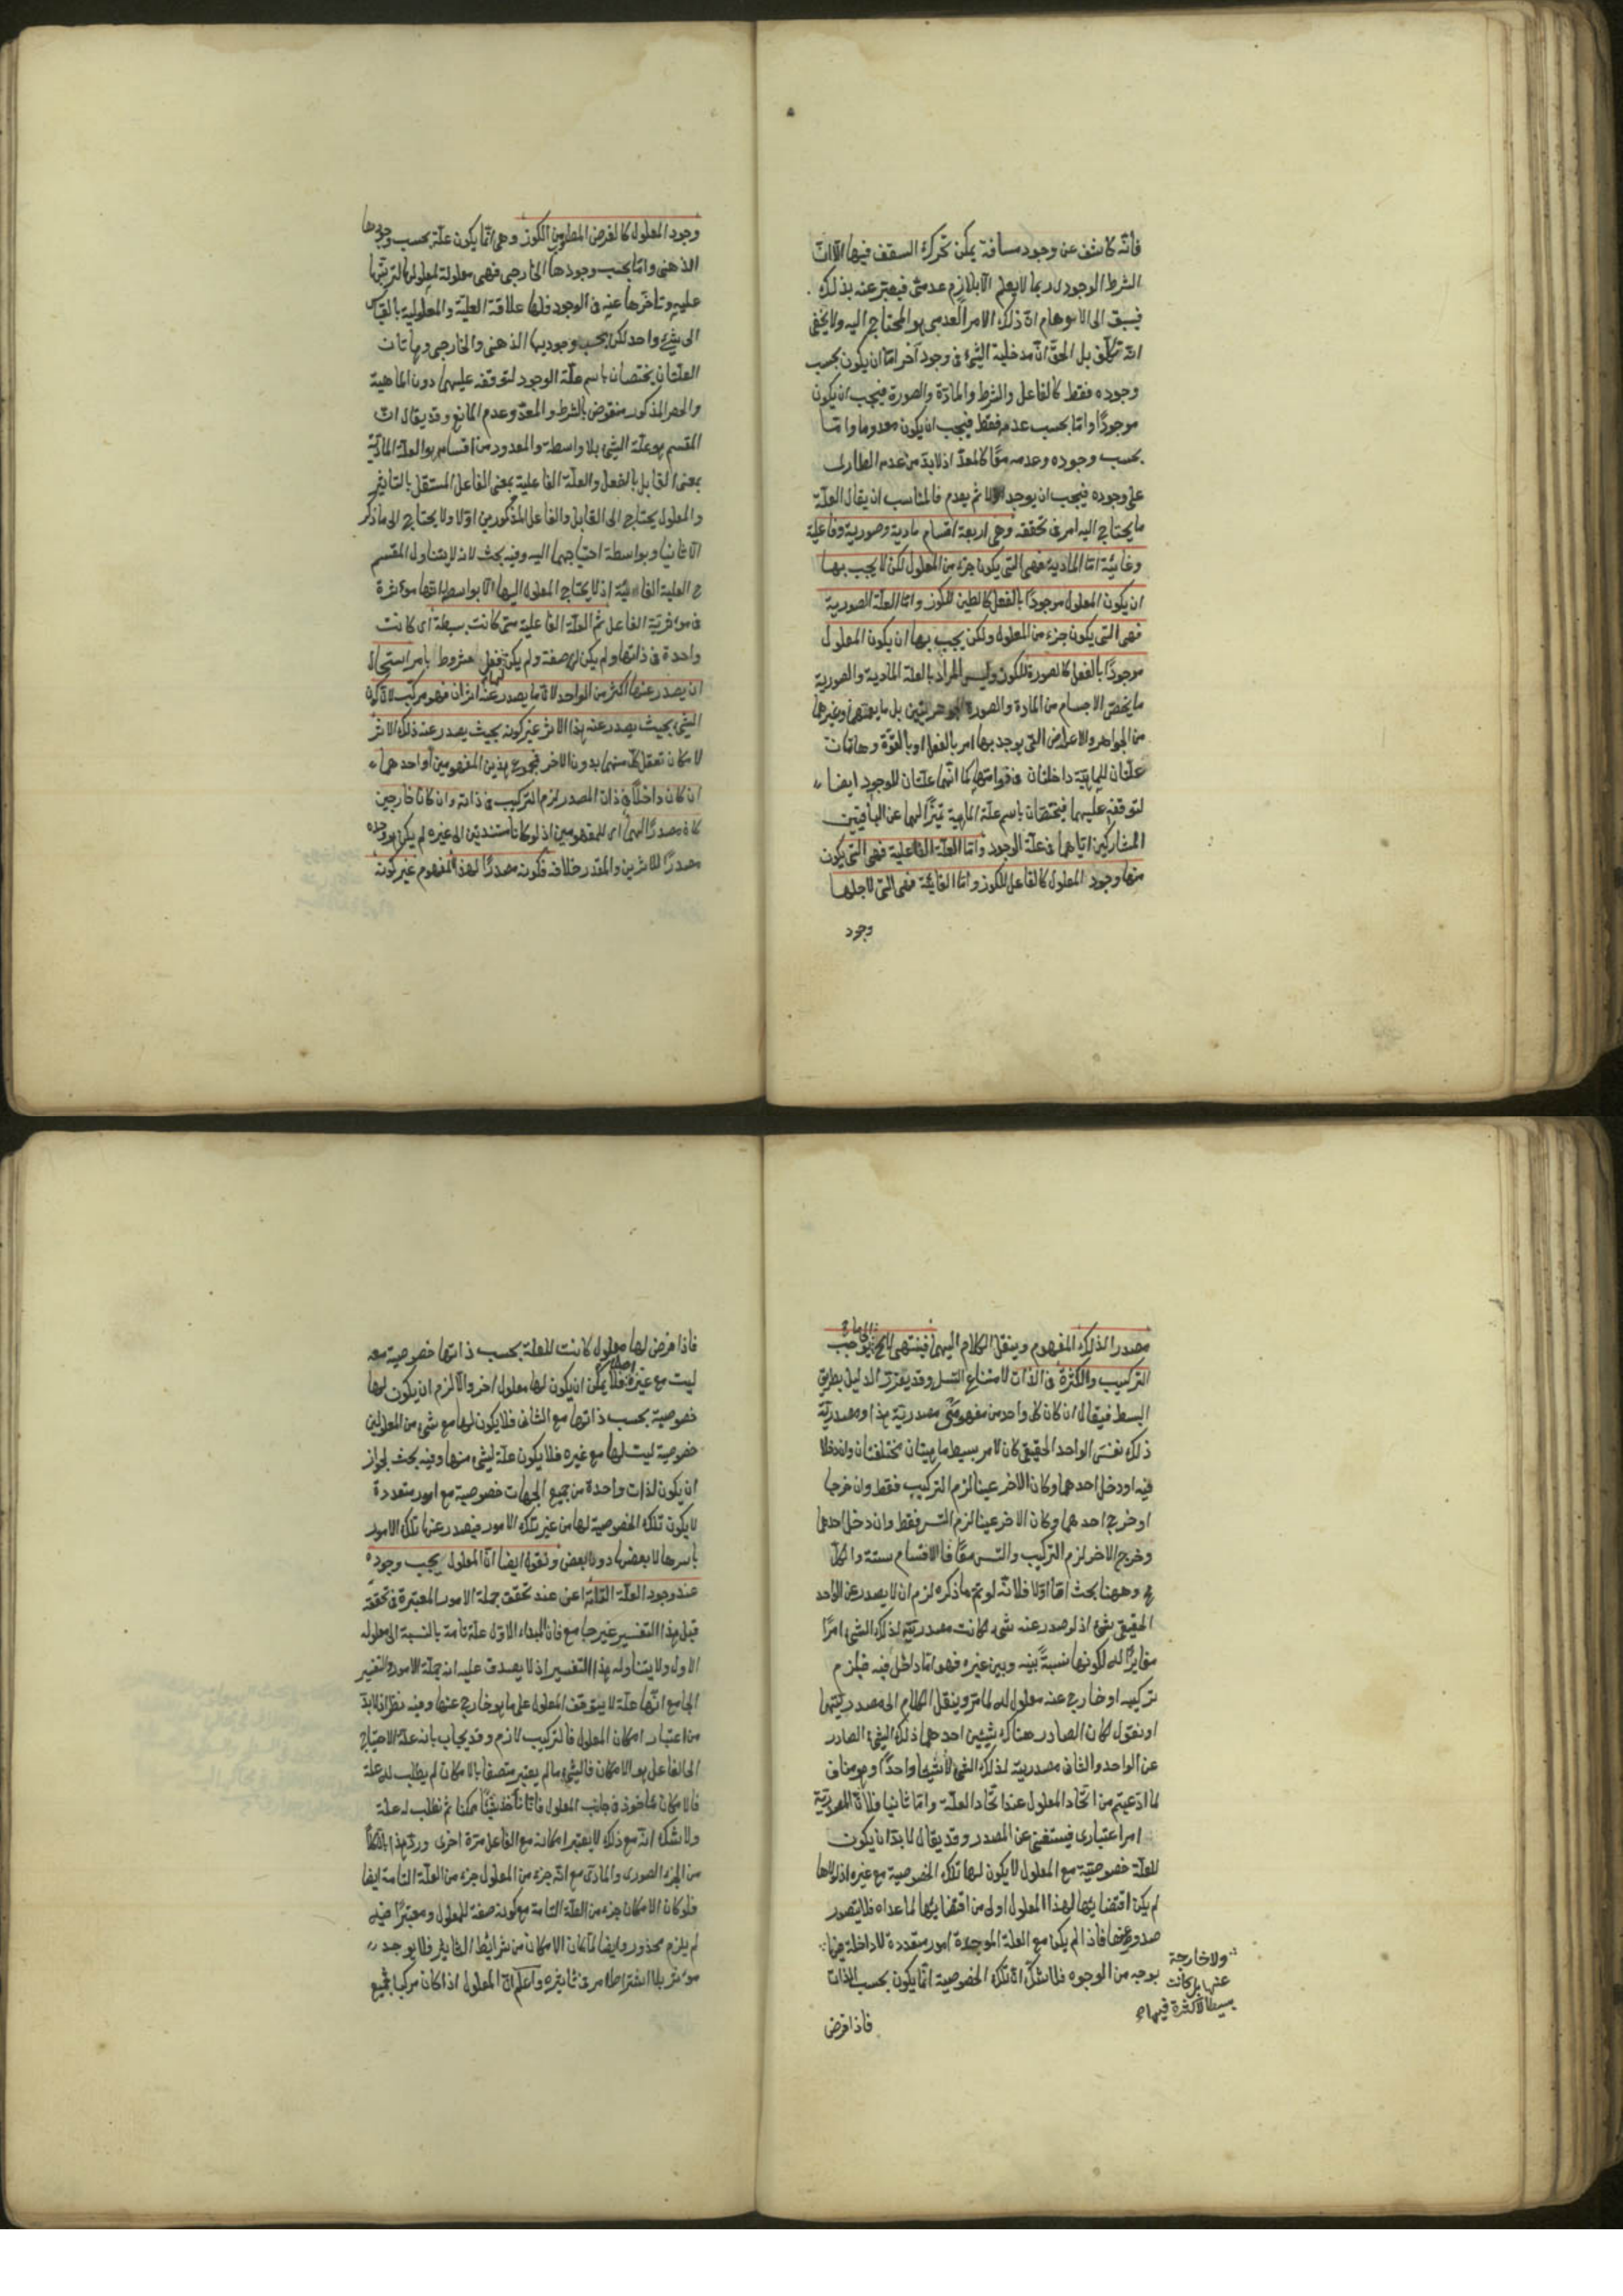 فانه كاشف عن وجود مسافة يمكن تحرك السقف فيها الا ان
الشرط الوجودى ربما لا يعلم الا بلازم عدمى فيعبر عنه بذلك
فيسبق الى الاوهام ان ذلك الامر العدمى هو المحتاج اليه ولا يخفى
انه تكلف بل الحق ان مدخلية الشئ فى وجود آخر اما ان يكون بحسب
وجوده فقط كالفاعل والشرط والمادة والصورة فيجب ان يكون
موجودًا واما بحسب عدمه فقط فيجب ان يكون معدوما واما
بحسب وجوده وعدمه معًا كالمعدّ اذ لابد من عدم الطارى
على وجوده فيجب ان يوجد اولا ثم يعدم فالمناسب ان يقال العلة
ما يحتاج اليه امر فى تحققه وهى اربعة اقسام مادية وصورية وفاعلية
وغائية اما المادية فهى التى يكون جزء من المعلول لكن لا يجب بها
ان يكون المعلول موجودًا بالفعل كالطين للكوز واما العلة الصورية
فهى التى يكون جزء من المعلول ولكن يجب بها ان يكون المعلول
موجودًا بالفعل كالصورة للكوز وليس المراد بالعلة المادية والصورية
ما يختص الاجسام من المادة والصورة الجوهريتين بل ما يعمهما وغيرهما
من الجواهر والاعراض التى يوجد بها امر بالفعل او بالقوة وهاتان
علتان للماهية داخلتان فى قوامها كما انهما علتان للوجود ايضا
لتوقفه عليهما فيختصان باسم علة الماهية تميزًا لهما عن الباقيتين
المشاركين اياهما فى علة الوجود واما العلة الفاعلية فهى التى يكون
منها وجود المعلول كالفاعل للكوز واما الغائية فهى التى لاجلها
وجود
وجود المعلول كالغرض المطلوب من الكوز وهى انما يكون علة بحسب وجودها
الذهنى واما بحسب وجودها الخارجى فهى معلولة لمعلولها لترتبها
عليه وتأخرها عنه فى الوجود فلها علاقة العلية والمعلولية بالقياس
الى شئ واحد لكن بحسب وجوديها الذهنى والخارجى وهاتان
العلتان يختصان باسم علة الوجود لتوقفه عليهما دون الماهية
والحصر المذكور منقوض بالشرط والمعدّ وعدم المانع وقد يقال ان
المقسم هو علة الشئ بلا واسطة والمعدود من اقسامه هو العلة المادية
بمعنى القابل بالفعل والعلة الفاعلية بمعنى الفاعل المستقل بالتاثير
والمعلول يحتاج الى القابل والفاعل المذكورين اولا ولا يحتاج الى ما ذكر
الا ثانيا وبواسطة احتياجهما اليه وفيه بحث لانه لا يتناول المقسم
ح العلية الغائية اذ لا يحتاج المعلول اليها الا بواسطة انها مؤثرة
فى مؤثرية الفاعل ثم العلة الفاعلية متى كانت بسيطة اى كانت
واحدة فى ذاتها ولم يكن لها صفة ولم يكن فعلها مشروطا بامر استحال
ان يصدر عنها اكثر من الواحد لان ما يصدر عنه اثران فهو مركب لان كون
الشئ بحيث يصدر عنه هذا الاثر غير كونه بحيث يصدر عنه ذلك الاثر
لامكان تعقل كل منهما بدون الاخر فمجموع هذين المفهومين او احدهما
ان كان داخلًا فى ذات المصدر لزم التركيب فى ذاته وان كانا خارجين
كان مصدرًا لهما اى للمفهومين اذ لو كانا مستندين الى غيره لم يكن هو وحده
مصدرًا للاثرين والمقدر خلافه فكونه مصدرًا لهذا المفهوم غير كونه
مصدرا لذلك المفهوم وينقل الكلام اليهما فينتهى لا محالة الى ما يوجب
التركيب والكثرة فى الذات لامتناع التسلسل وقد يقرر الدليل بطريق
البسط فيقال ان كان كل واحد من مفهومى مصدرية هذا ومصدرية
ذلك نفس الواحد الحقيقى كان لامر بسيط ماهيتان مختلفتان وان دخلا
فيه او دخل احدهما وكان الاخر عينا لزم التركيب فقط وان خرجا
او خرج احدهما وكان الاخر عينا لزم التسـ فقط وان دخل احدهما
وخرج الاخر لزم التركيب والتسـ معًا فالاقسام ستة والكل
مح وههنا بحث اما اولا فلانه لو تم ما ذكره لزم ان لا يصدر عن الواحد
الحقيقى شئ اذ لو صدر عنه شئ لكانت مصدريته لذلك الشئ امرًا
مغايرًا له لكونها نسبةً بينه وبين غيره فهو اما داخل فيه فيلزم
تركيبه او خارج عنه معلول له لما مر وينقل الكلام الى مصدريتها
او نقول لكان الصادر هناك شيئين احدهما ذلك الشئ الصادر
عن الواحد والثانى مصدرية لذلك الشئ لا شيئا واحدًا وهو مناف
لما ادعيتم من اتحاد المعلول عند اتحاد العلة واما ثانيا فلان المصدرية
امر اعتبارى فيستغنى عن المصدر وقد يقال لابد ان يكون
للعلة خصوصية مع المعلول لا يكون لها تلك الخصوصية مع غيره اذ لولاها
لم يكن اقتضاؤها لهذا المعلول اولى من اقتضائها لما عداه فلا يتصور
صدوره عنها فاذا لم يكن مع العلة الموجدة امور متعددة لا داخلة فيها
بوجه من الوجوه فلا شك ان تلك الخصوصية انما يكون بحسب الذات
ولا خارجة
عنها بل كانت
بسيطة لا كثرة فيها
فاذا فرض
فاذا فرض لها معلول كانت للعلة بحسب ذاتها خصوصية معه
ليست مع غيره فلا يمكن ان يكون لها معلول اخر والا لزم ان يكون لها
خصوصية بحسب ذاتها مع الثانى فلا يكون لها مع شئ من المعلولين
خصوصية ليست لها مع غيره فلا يكون علة لشئ منها وفيه بحث لجواز
ان يكون لذات واحدة من جميع الجهات خصوصية مع امور متعددة
لا يكون تلك الخصوصية لها من غير تلك الامور فيصدر عنها تلك الامور
باسرها لا بعضها دون بعض ونقول ايضا ان المعلول يجب وجوده
عند وجود العلة التامة اعنى عند تحقق جملة الامور المعتبرة فى تحققه
قيل هذا التفسير غير جامع فان المبداء الاول علة تامة بالنسبة الى معلوله
الاول ولا يتناوله هذا التفسير اذ لا يصدق عليه انه جملة الامور والتفسير
الجامع انها علة لا يتوقف المعلول على ما هو خارج عنها وفيه نظر اذ لابد
من اعتبار امكان المعلول فالتركيب لازم وقد يجاب بانه علة الاحتياج
الى الفاعل هو الامكان فالشئ ما لم يعتبر متصفا بالامكان لم يطلب له علة
فالامكان ماخوذ فى جانب المعلول فانا نأخذ شيئًا ممكنا ثم نطلب له علة
ولا شك انه مع ذلك لا يعتبر امكانه مع الفاعل مرة اخرى ورد هذا بان كلاً
من الجزء الصورى والمادى مع انه جزء من المعلول جزء من العلة التامة ايضا
فلو كان الامكان جزء من العلة التامة مع كونه صفة للمعلول ومعتبرًا فيه
لم يلزم محذور وايضا لما كان الامكان من شرائط التاثير فلا يوجد
مؤثر بلا اشتراط امر فى تاثيره واعلم ان المعلول اذا كان مركبا فجميع